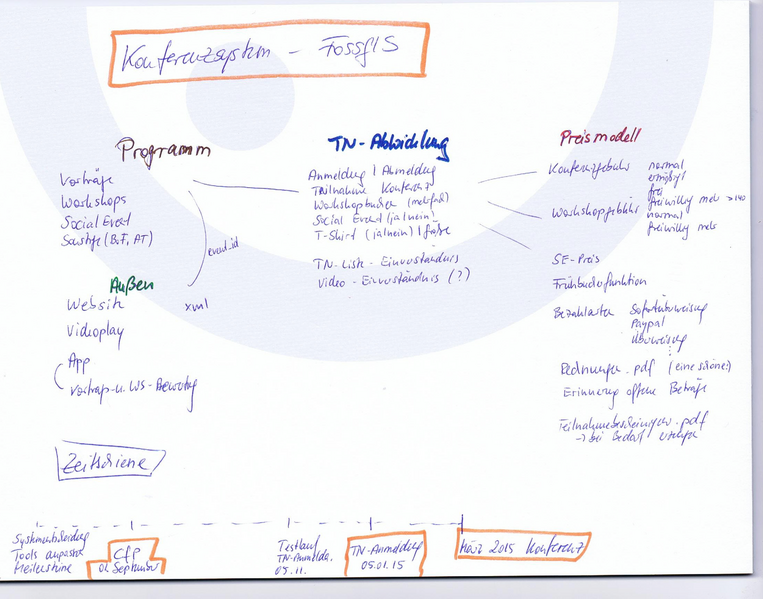 Konferenzsystem – FossGIS
Programm
Vorträge
Workshops
Social Event
Sonstige (BoF, AT)
event_id
xml
Außen
Website
Videoplay
App
Vortrags-u. WS-Bewertung
TN-Abwicklung
Anmeldung | Abmeldung
Teilnahme Konferenz
Workshopbuchen (mehrfach)
Social Event (ja|nein)
T-Shirt (ja|nein) | Größe
TN-Liste - Einverständnis
Video - Einverständnis (?)
Preismodell
Konferenzgebühr normal
ermäßigt
frei
freiwillig mehr > 140
Workshopgebühr normal
freiwillig mehr
SE-Preis
Frühbucherfunktion
Bezahlarten Sofortüberweisung
Paypal
Überweisung
Rechnungen .pdf (eine schöne!)
Erinnerung offene Beträge
Teilnahmebescheinigungen .pdf
→ bei Bedarf
Zeitschiene
Systementscheidung
Tools anpassen
Meilensteine
CfP
01. September
Testlauf
TN-Anmeldg.
05.11.
TN-Anmeldung
05.01.15
März 2015 Konferenz